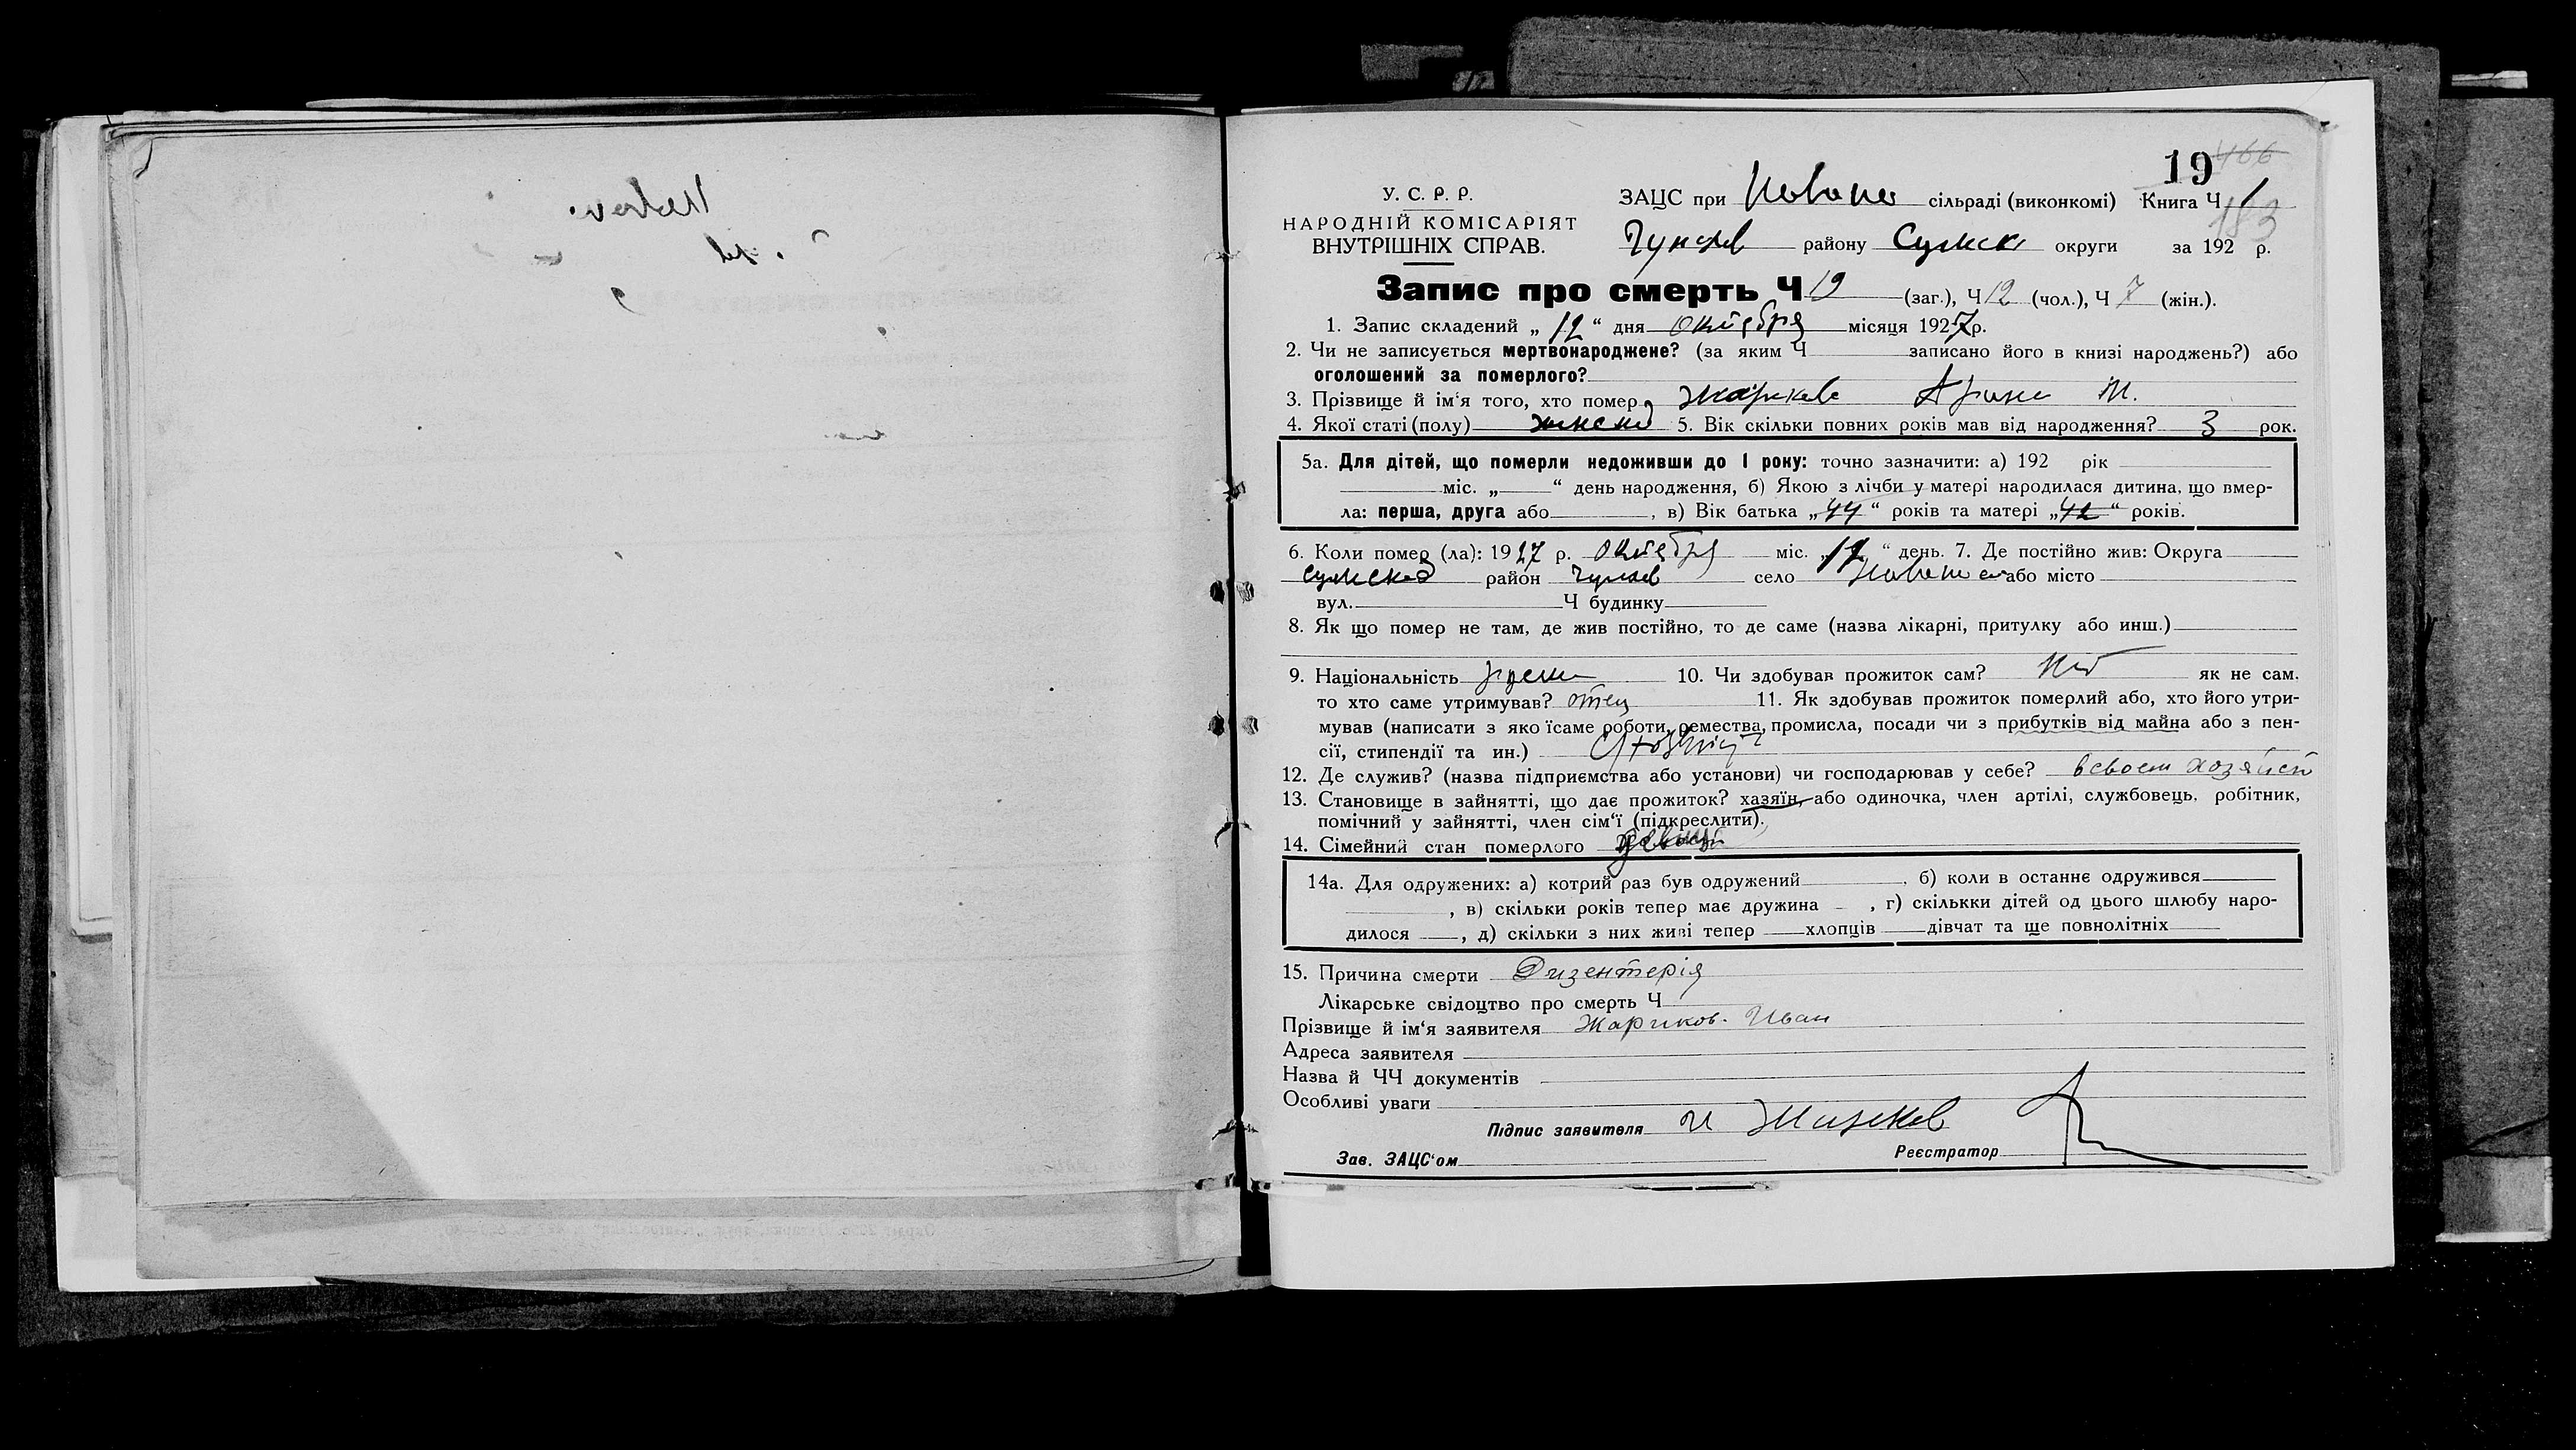 19 466
У. С. Р. Р.
НАРОДНІЙ КОМІСАРІЯТ
ВНУТРІШНІХ СПРАВ.
ЗАЦС при сільраді (виконкомі) Книга Ч 1
183
району Сумск округи за 192 р.
Запис про смерть Ч 19 (заг.), Ч 12 (чол.), Ч 7 (жін.).
1. Запис складений „ 12 “ дня октября місяця 1927 р.
2. Чи не записується мертвонароджене? (за яким Ч записано його в книзі народжень?) або
оголошений за померлого?
3. Прізвище й ім‘я того, хто помер М.
4. Якої статі (полу) женской 5. Вік скільки повних років мав від народження? 3 рок.
5а. Для дітей, що померли недоживши до 1 року: точно зазначити: а) 192 рік
міс. „ “ день народження, б) Якою з лічби у матері народилася дитина, що вмер-
ла: перша, друга або , в) Вік батька „44“ років та матері „42“ років.
6. Коли помер (ла): 1927 р. октября міс. „12“ день. 7. Де постійно жив: Округа
Сумской район село або місто
вул. Ч будинку
8. Як що помер не там, де жив постійно, то де саме (назва лікарні, притулку або инш.)
9. Національність 10. Чи здобував прожиток сам? Нет як не сам.
то хто саме утримував? отец 11. Як здобував прожиток померлий або, хто його утри-
мував (написати з яко їсаме роботи, ремества, промисла, посади чи з прибутків від майна або з пен-
сії, стипендії та ин.)
12. Де служив? (назва підприємства або установи) чи господарював у себе? в своем хозяйст
13. Становище в зайнятті, що дає прожиток? хазяїн, або одиночка, член артілі, службовець, робітник,
помічний у зайнятті, член сім‘ї (підкреслити).
14. Сімейний стан померлого
14а. Для одружених: а) котрий раз був одружений , б) коли в останнє одружився
, в) скільки років тепер має дружина , г) скількки дітей од цього шлюбу наро-
дилося , д) скільки з них живі тепер хлопців дівчат та ще повнолітніх
15. Причина смерти Дизентерія
Лікарське свідоцтво про смерть Ч
Прізвище й ім‘я заявителя Жариков Иван
Адреса заявителя
Назва й ЧЧ документів
Особливі уваги
Підпис заявителя И Жариков
Зав. ЗАЦС‘ом Реєстратор